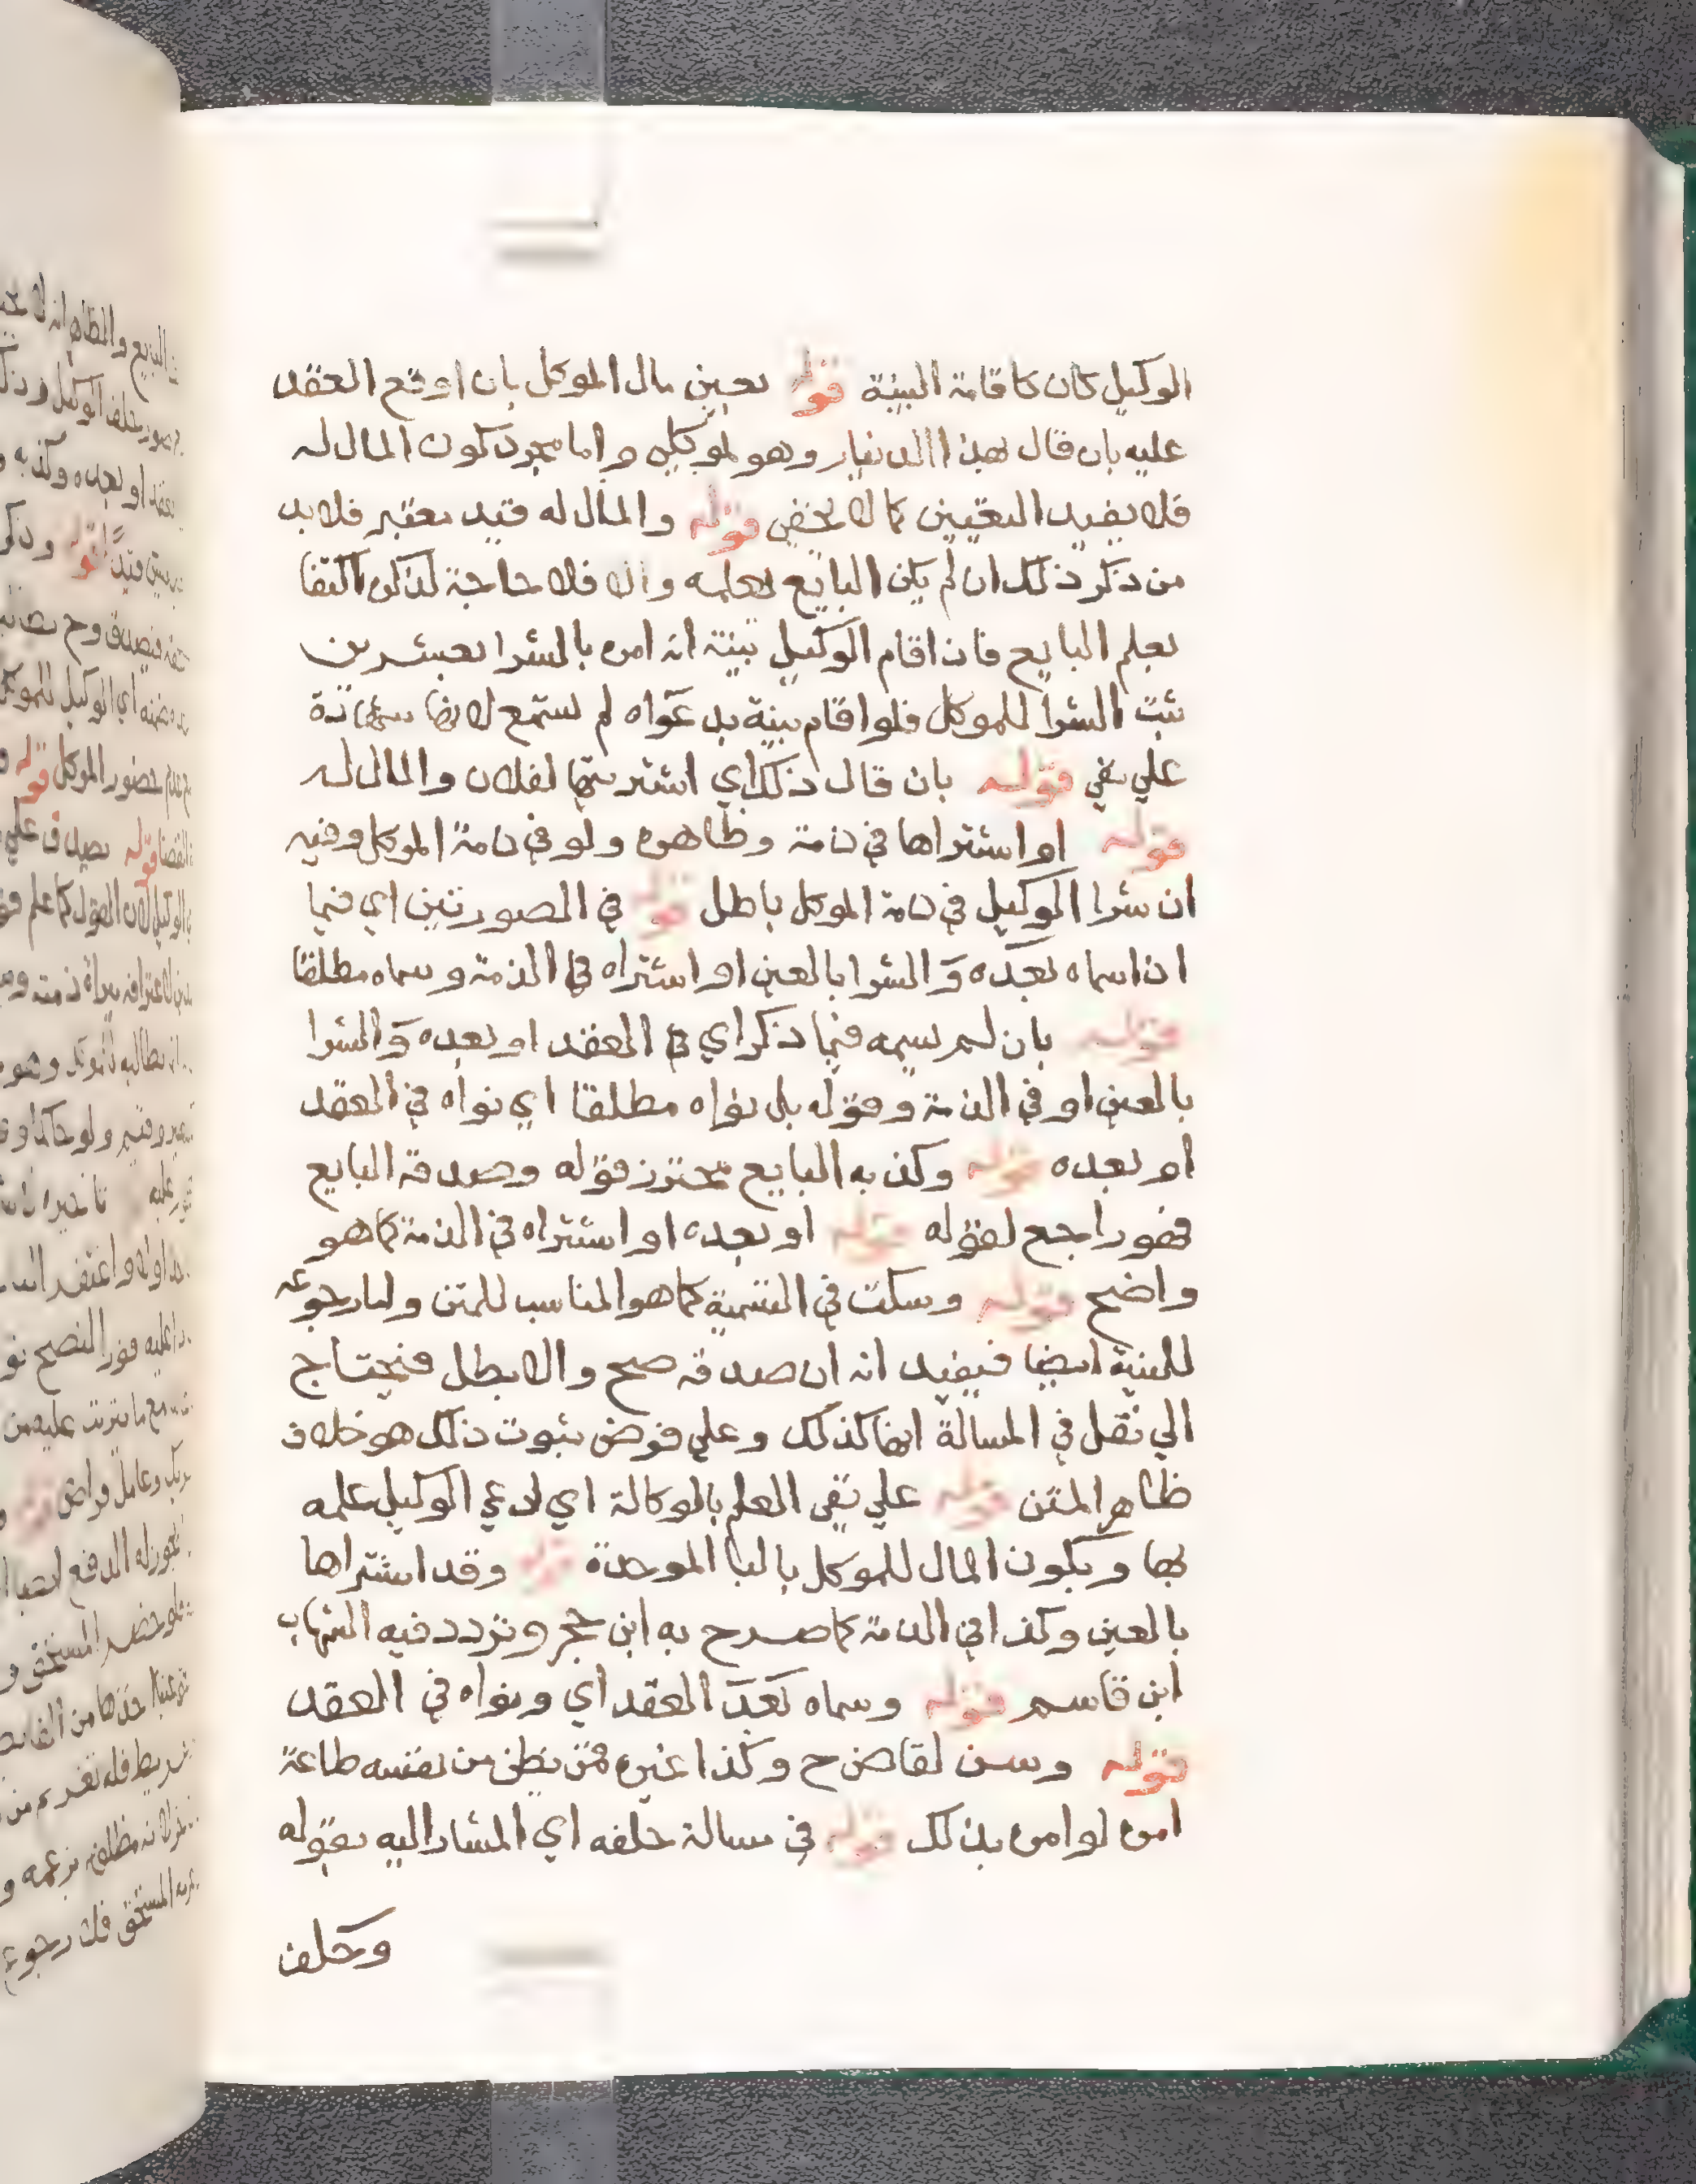 الوكيل كان كاقامة البينة قوله بعين مال الموكل بان اوقع العقد
عليه بان قال بهذا الدينار وهو لموكلي واما مجرد كون المال له
فلا يفيد التعيين كما لا يخفي قوله والمال له قيد معتبر فلا بد
من ذكر ذلك ان لم يكن البايع يعلمه والا فلا حاجة لذكره اكتفا
بعلم البايع فان اقام الوكيل بينة انه امره بالشرا بعشرين
ثبت الشرا للموكل فلو اقام بينة بدعواه لم تسمع لانها شهادة
علي نفي قوله بان قال ذلك اي اشتريتها لفلان والمال له
قوله او اشتراها في ذمة وظاهره ولو في ذمة الموكل وفيه
ان شرا الوكيل في ذمة الموكل باطل قوله في الصورتين اي فيما
ان اسماه بعده والشرا بالعين او اشتراه في الذمة وسماه مطلقا
قوله بان لم يسمه فيما ذكر اي في العقد او بعده والشرا
بالعين او في الذمة وقوله بل نواه مطلقا اي نواه في العقد
او بعده قوله وكذبه البايع محترز قوله وصدقه البايع
فهو راجع لقوله قوله او بعده او اشتراه في الذمة كما هو
واضح قوله وسكت في التسمية كما هو المناسب للمتن واما رجوعه
للنية ايضا فيفيد انه ان صدقه صح والا بطل فيحتاج
الي نقل في المسالة ايضا كذلك وعلي فرض ثبوت ذلك هو خلاف
ظاهر المتن قوله علي نفي العلم بالوكالة اي ادعي الوكيل علمه
بها وبكون المال للموكل بالبا الموحدة قوله وقد اشتراها
بالعين وكذا في الذمة كما صرح به ابن حجر وتردد فيه الشهاب
ابن قاسم قوله وسماه بعد العقد اي ونواه في العقد
قوله وسن لقاض ح وكذا غيره ممن يظن من نفسه طاعة
امره لو امره بذلك قوله في مسالة حلفه اي المشار اليه بقوله
وحلف